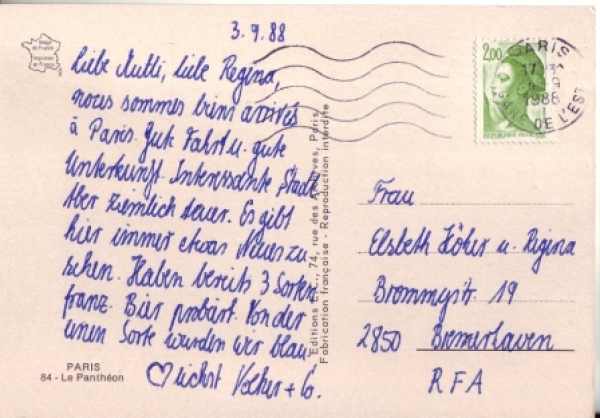 3.9.88
Image de France
Imprimée en France
Liebe Mutti, liebe Regina,
nous sommes bien arrivés
à Paris. Gute Fahrt u. gute
Unterkunft. Interessante Stadt
Aber ziemlich teuer. Es gibt
hier immer etwas Neues zu
sehen. Haben bereits 3 Sorten
franz. Bier probiert. Von der
einen Sorte wurden wir blau.
♡lichst Volker + Co.
PARIS
84 - Le Panthéon
Editions 74, rue des Archives, Paris
Fabrication française - Reproduction interdite
2,00
REPUBLIQUE FRANÇAISE
PARIS
17
1988
DE L'EST
Frau
Elsbeth Höker u. Regina
Brommystr. 19
2850 Bremerhaven
RFA